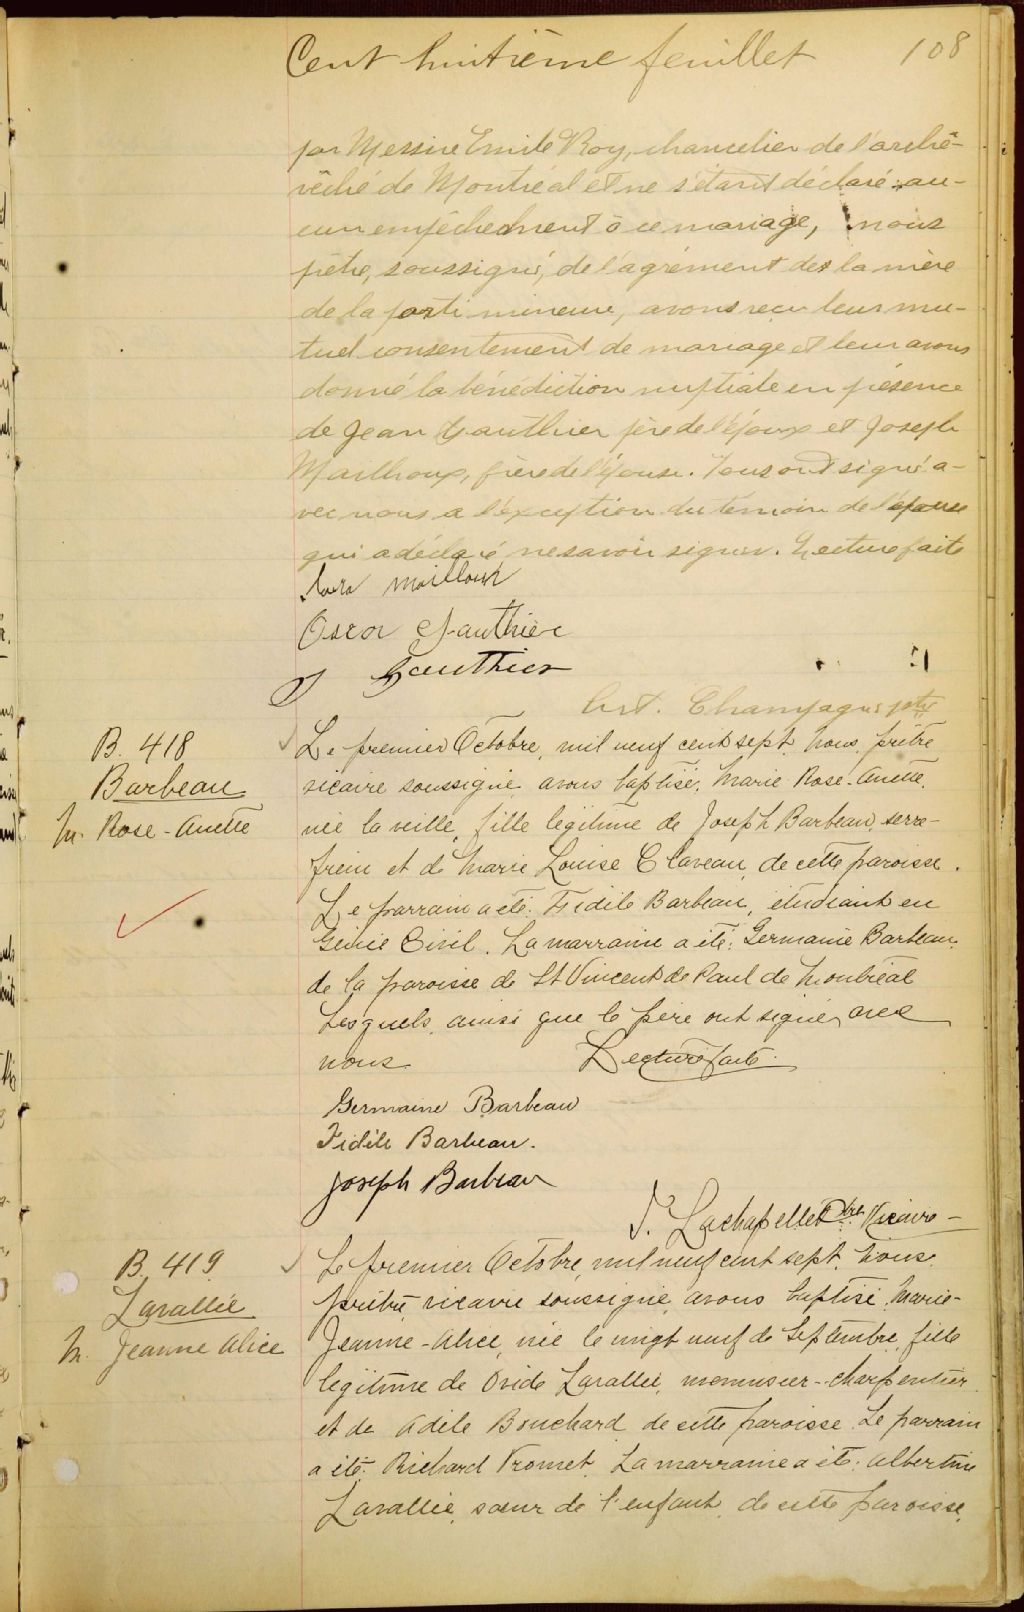 Cent huitième feuillet 108
par Messire Emile Roy, chancelier de l'arche-
vêché de Montréal et ne s'étant déclaré au-
cun empêchement à ce mariage, nous
prêtre, soussigné, de l'agrément de la mère
de la partie mineure, avons reçu leur mu-
tuel consentement de mariage et leur avons
donné la bénédiction nuptiale en présence
de Jean Gauthier père de l'époux et Joseph
Mailhoux, frère de l'épouse. Tous ont signé a-
vec nous à l'exception du témoin de l'épouse
qui a déclaré ne savoir signer. Lecture faite
mailloux
Oscar Gauthier
J Gauthier
Champagne ptre
B. 418
Barbeau
M. Rose-Anette
Le premier Octobre, mil neuf cent sept, Nous, prêtre
vicaire soussigné avons baptisé, Marie Rose-Anette,
née la veille, fille légitime de Joseph Barbeau, serre-
frein et de Marie Louise Claveau, de cette paroisse.
Le parrain a été: Fidèle Barbeau, étudiant en
Génie Civil. La marraine a été: Germanie Barbeau,
de la paroisse de St Vincent de Paul de Montréal
Lesquels, ainsi que le père ont signé avec
nous. Lecture faite.
Germaine Barbeau
Fidèle Barbeau.
Joseph Barbeau
J. Lachapelle Ptre Vicaire
B. 419
Lavallée
M. Jeanne Alice
Le premier Octobre, mil neuf cent sept, Nous
prêtre vicaire soussigné, avons baptisé, Marie-
Jeanne-Alice, née le vingt neuf de Septembre, fille
légitime de Ovide Lavallée, menuisier-charpentier
et de Adèle Bouchard de cette paroisse. Le parrain
a été: Richard Fromet. La marraine a été: Albertine
Lavallée, sœur de l'enfant, de cette paroisse,